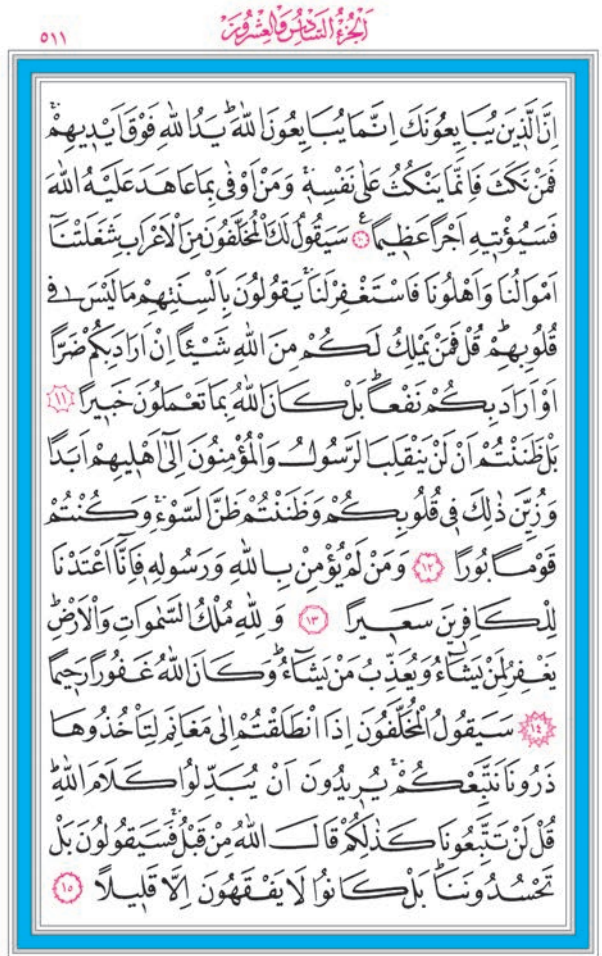 الجزء السادس والعشرون
٥١١
اِنَّ الَّذٖينَ يُبَايِعُونَكَ اِنَّمَا يُبَايِعُونَ اللّٰهَ يَدُ اللّٰهِ فَوْقَ اَيْدٖيهِمْ
فَمَنْ نَكَثَ فَاِنَّمَا يَنْكُثُ عَلٰى نَفْسِهٖ وَمَنْ اَوْفٰى بِمَا عَاهَدَ عَلَيْهُ اللّٰهَ
فَسَيُؤْتٖيهِ اَجْرًا عَظٖيمًا ١٠ سَيَقُولُ لَكَ الْمُخَلَّفُونَ مِنَ الْاَعْرَابِ شَغَلَتْنَا
اَمْوَالُنَا وَاَهْلُونَا فَاسْتَغْفِرْ لَنَا يَقُولُونَ بِاَلْسِنَتِهِمْ مَا لَيْسَ فٖى
قُلُوبِهِمْ قُلْ فَمَنْ يَمْلِكُ لَكُمْ مِنَ اللّٰهِ شَيْـًٔا اِنْ اَرَادَ بِكُمْ ضَرًّا
اَوْ اَرَادَ بِكُمْ نَفْعًا بَلْ كَانَ اللّٰهُ بِمَا تَعْمَلُونَ خَبٖيرًا ١١
بَلْ ظَنَنْتُمْ اَنْ لَنْ يَنْقَلِبَ الرَّسُولُ وَالْمُؤْمِنُونَ اِلٰٓى اَهْلٖيهِمْ اَبَدًا
وَزُيِّنَ ذٰلِكَ فٖى قُلُوبِكُمْ وَظَنَنْتُمْ ظَنَّ السَّوْءِ وَكُنْتُمْ
قَوْمًا بُورًا ١٢ وَمَنْ لَمْ يُؤْمِنْ بِاللّٰهِ وَرَسُولِهٖ فَاِنَّٓا اَعْتَدْنَا
لِلْكَافِرٖينَ سَعٖيرًا ١٣ وَلِلّٰهِ مُلْكُ السَّمٰوَاتِ وَالْاَرْضِ
يَغْفِرُ لِمَنْ يَشَٓاءُ وَيُعَذِّبُ مَنْ يَشَٓاءُ وَكَانَ اللّٰهُ غَفُورًا رَحٖيمًا
١٤ سَيَقُولُ الْمُخَلَّفُونَ اِذَا انْطَلَقْتُمْ اِلٰى مَغَانِمَ لِتَاْخُذُوهَا
ذَرُونَا نَتَّبِعْكُمْ يُرٖيدُونَ اَنْ يُبَدِّلُوا كَلَامَ اللّٰهِ
قُلْ لَنْ تَتَّبِعُونَا كَذٰلِكُمْ قَالَ اللّٰهُ مِنْ قَبْلُ فَسَيَقُولُونَ بَلْ
تَحْسُدُونَنَا بَلْ كَانُوا لَا يَفْقَهُونَ اِلَّا قَلٖيلًا ١٥